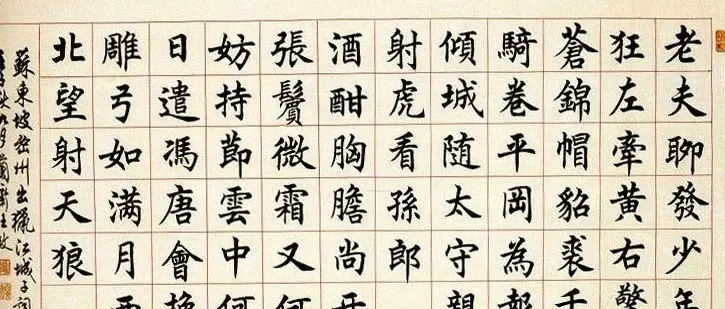 老夫聊發少年
狂左牽黃右擎
蒼錦帽貂裘千
騎卷平岡為報
傾城随太守親
射虎看孫郎
酒酣胸膽尚开
張鬢微霜又何
妨持節雲中何
日遣馮唐會挽
雕弓如滿月西
北望射天狼
蘇東坡密州出獵江城子詞
秋九月